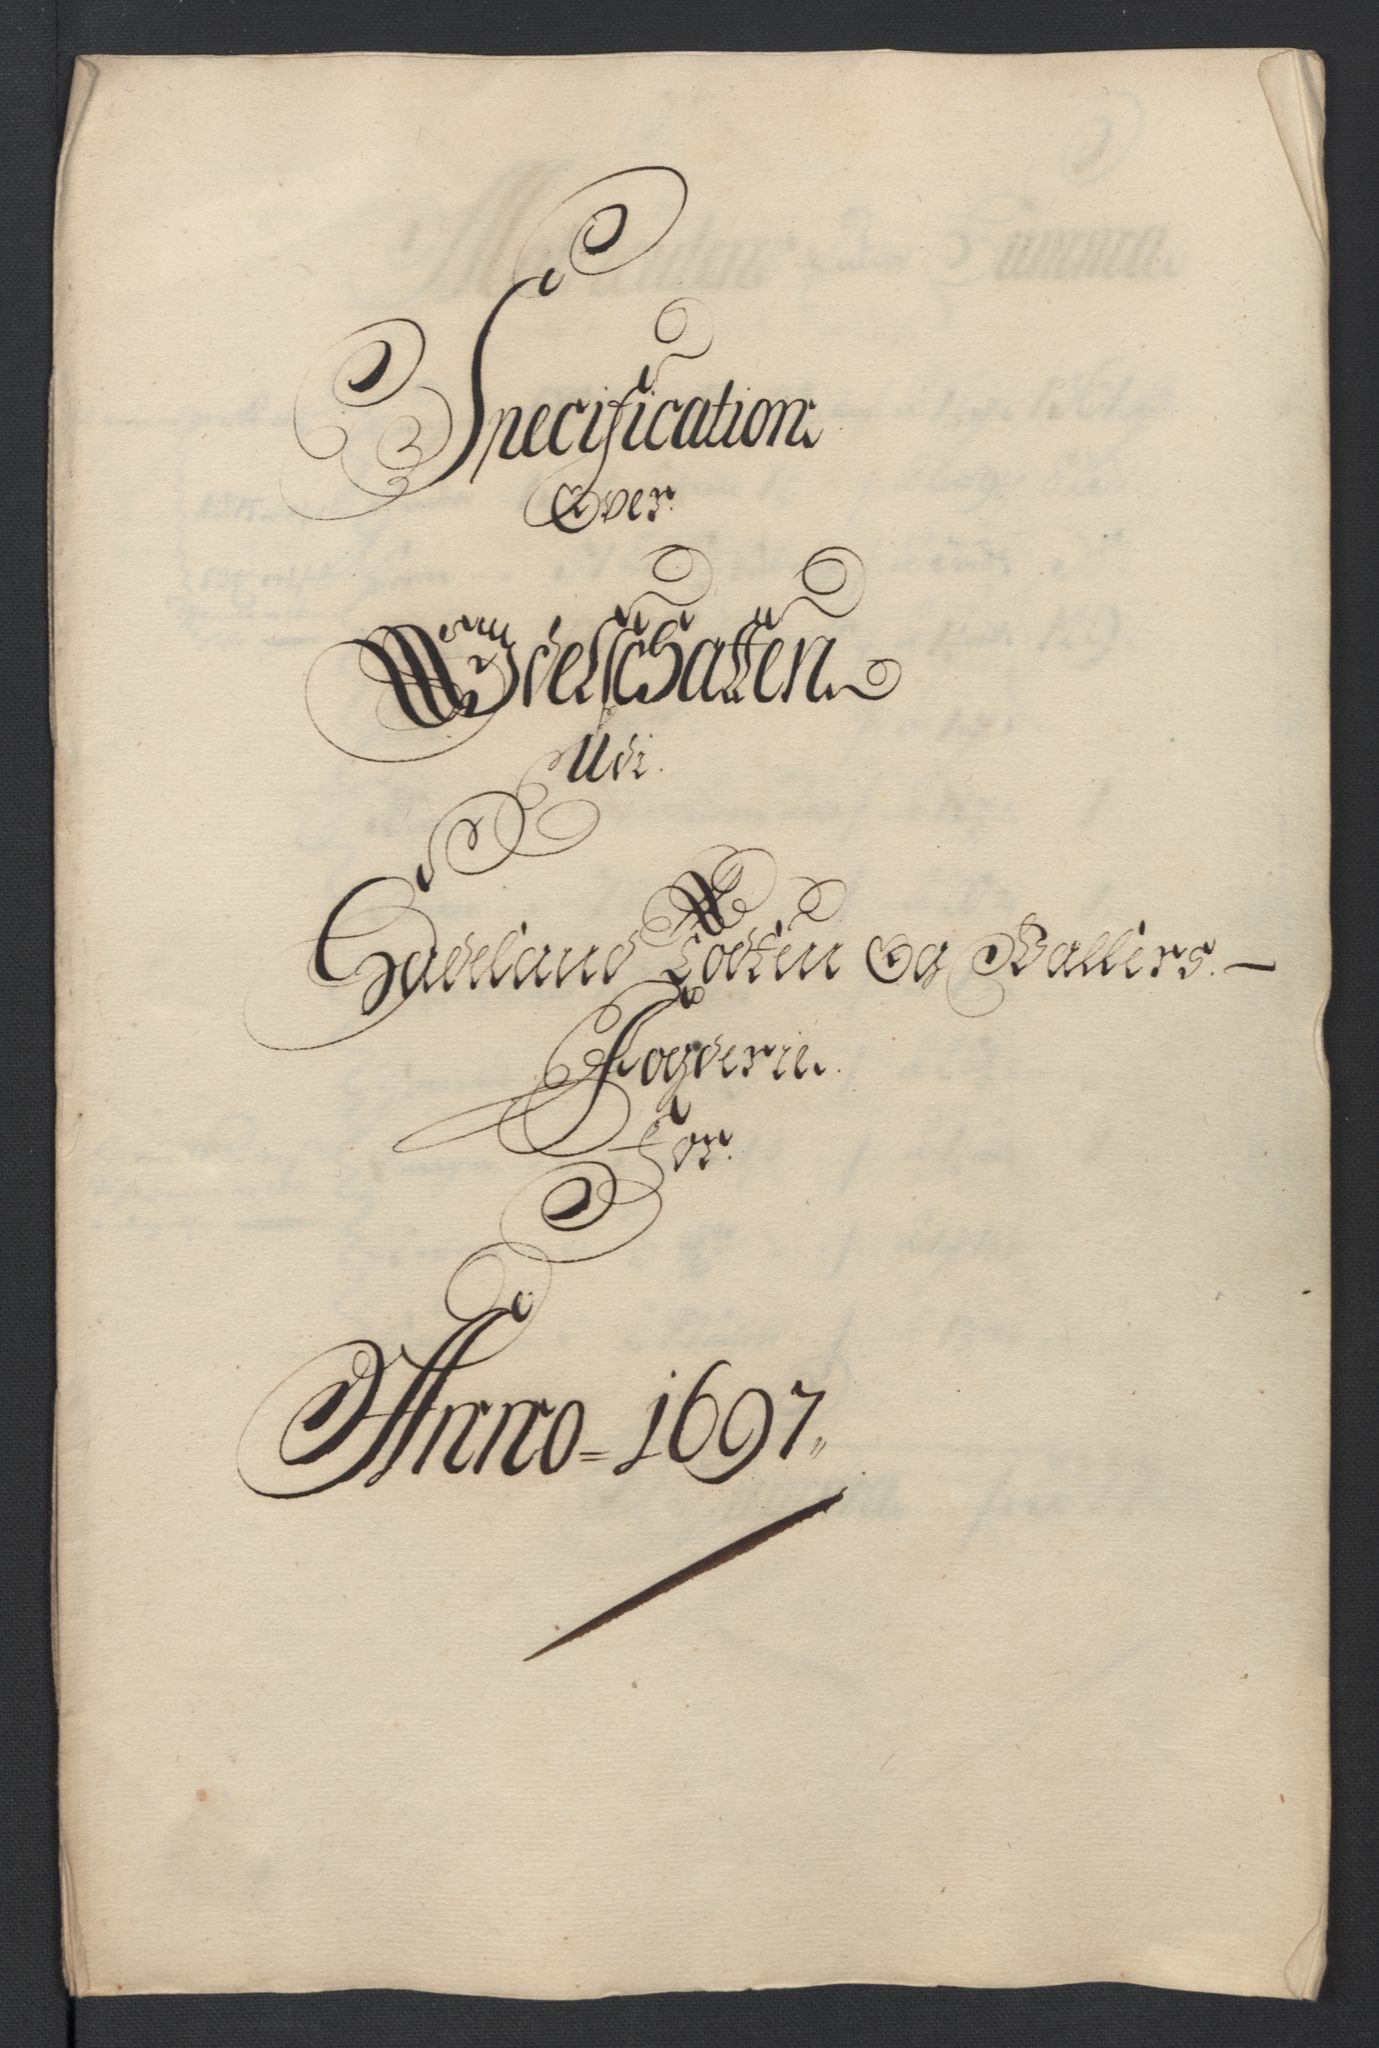 Specification
Over
Midelschatten
Udi
Hadeland Totten Og Vallers. —
Fogderie
For
Anno = 1697